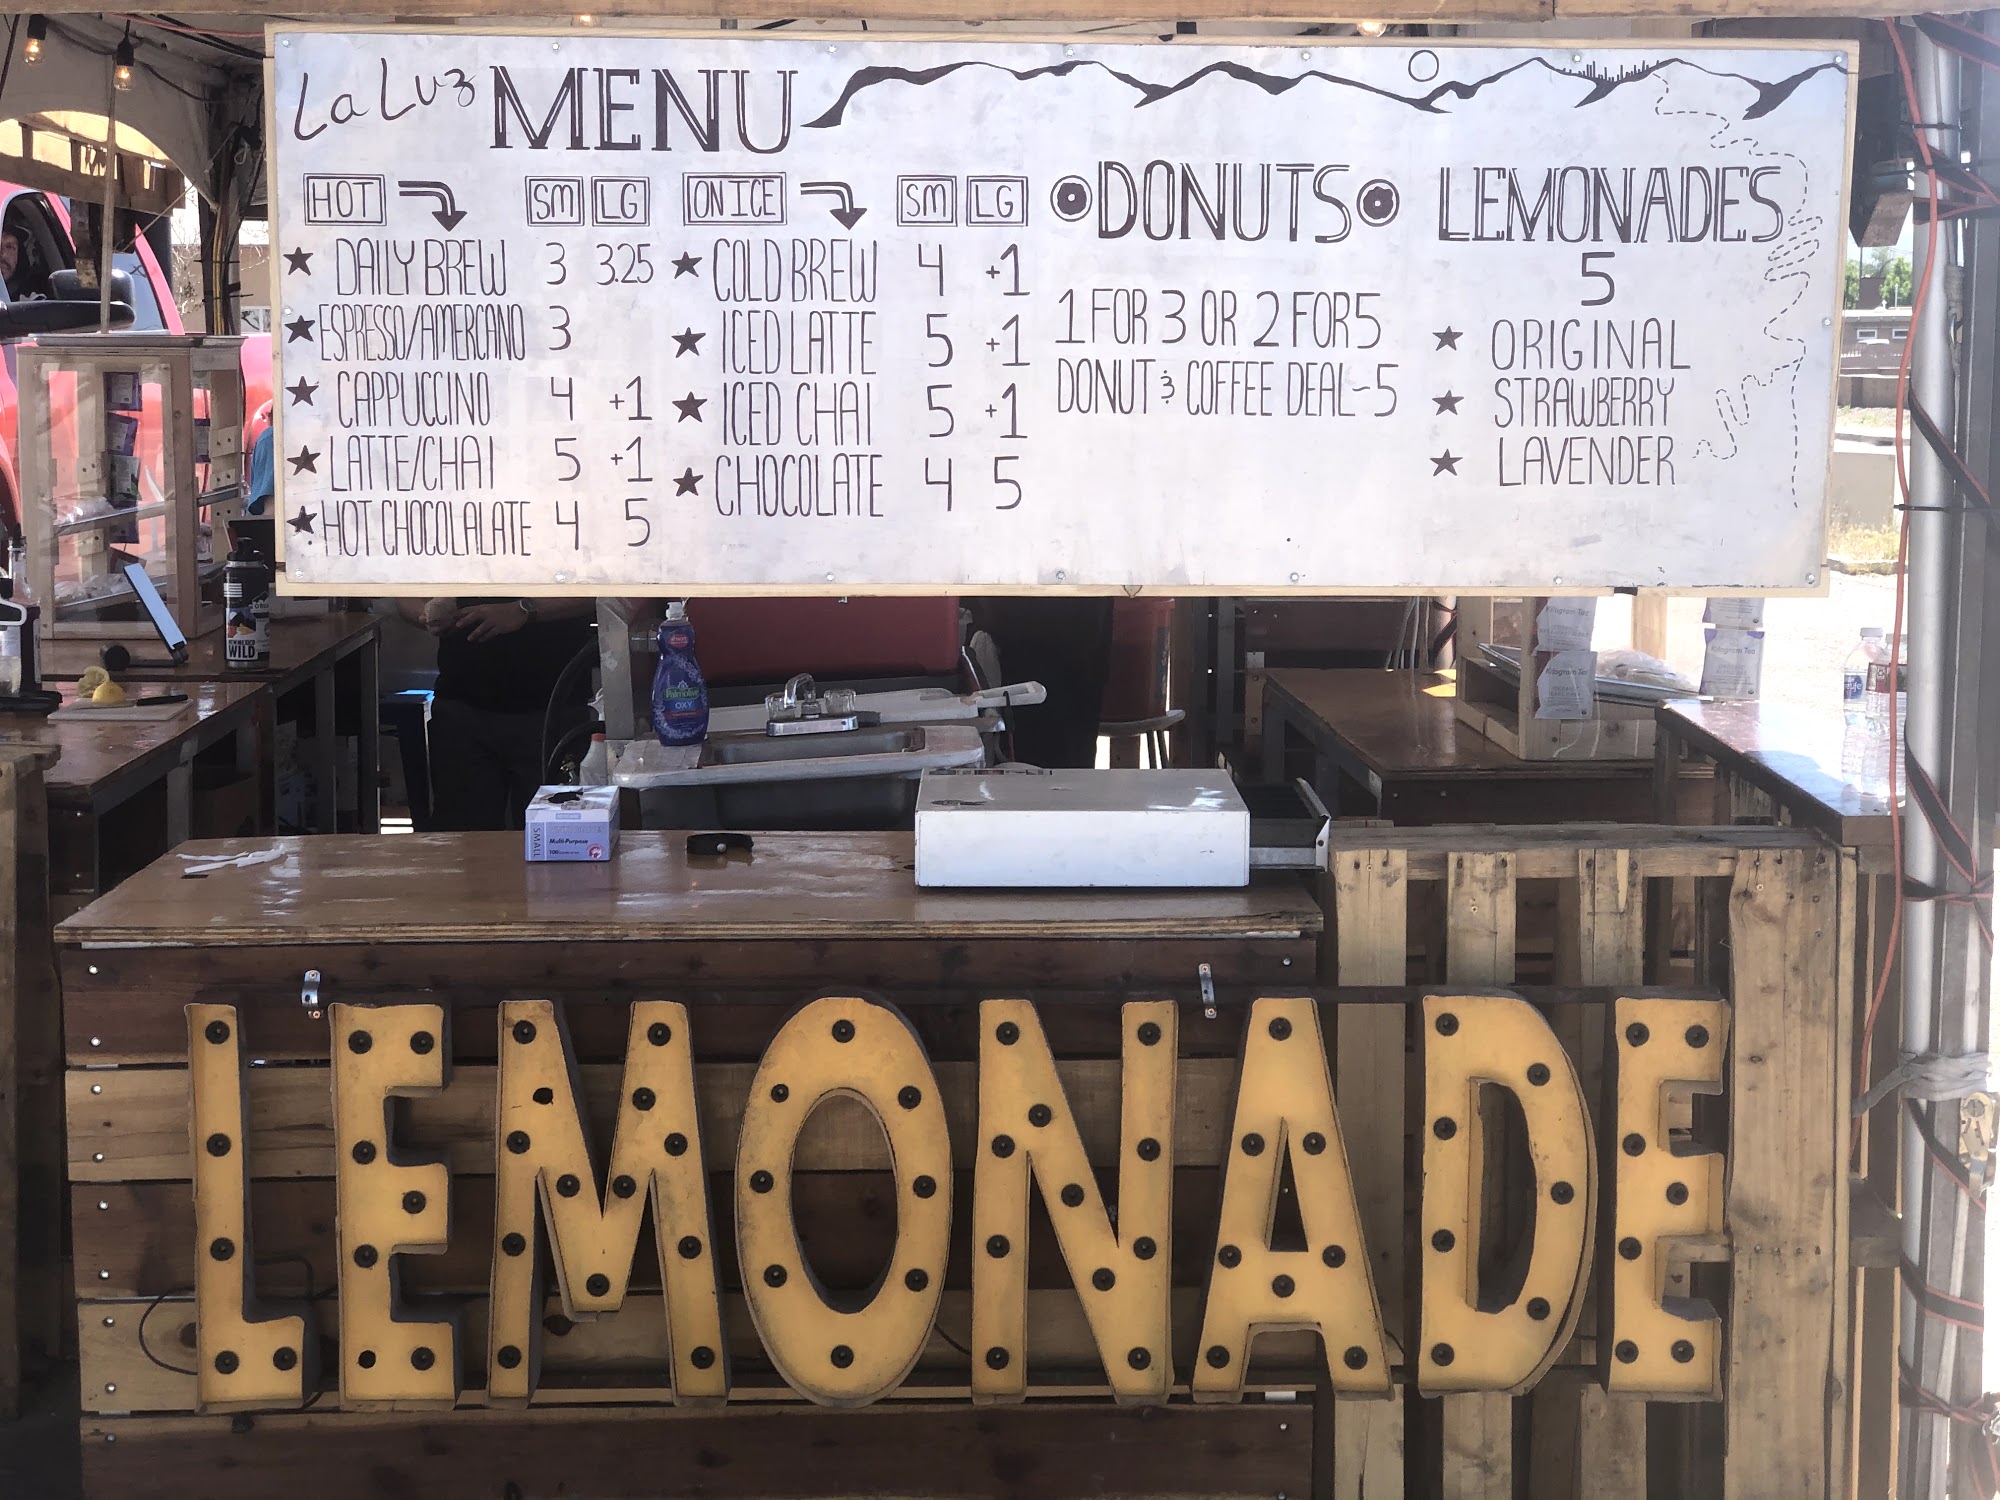 La Luz MENU
HOT SM LG
DAILY BREW 3 3.25
ESPRESSO/AMERCANO 3
CAPPUCCINO 4 +1
LATTE/CHAI 5 +1
HOT CHOCOLALATE 4 5
ON ICE SM LG
COLD BREW 4 +1
ICED LATTE 5 +1
ICED CHAI 5 +1
CHOCOLATE 4 5
DONUTS
1 FOR 3 OR 2 FOR 5
DONUT & COFFEE DEAL~5
LEMONADES
5
ORIGINAL
STRAWBERRY
LAVENDER
WILD
Palmolive
OXY
Kilogram Tea
Kilogram Tea
Kilogram Tea
SMALL
Multi-Purpose
100
LEMONADE